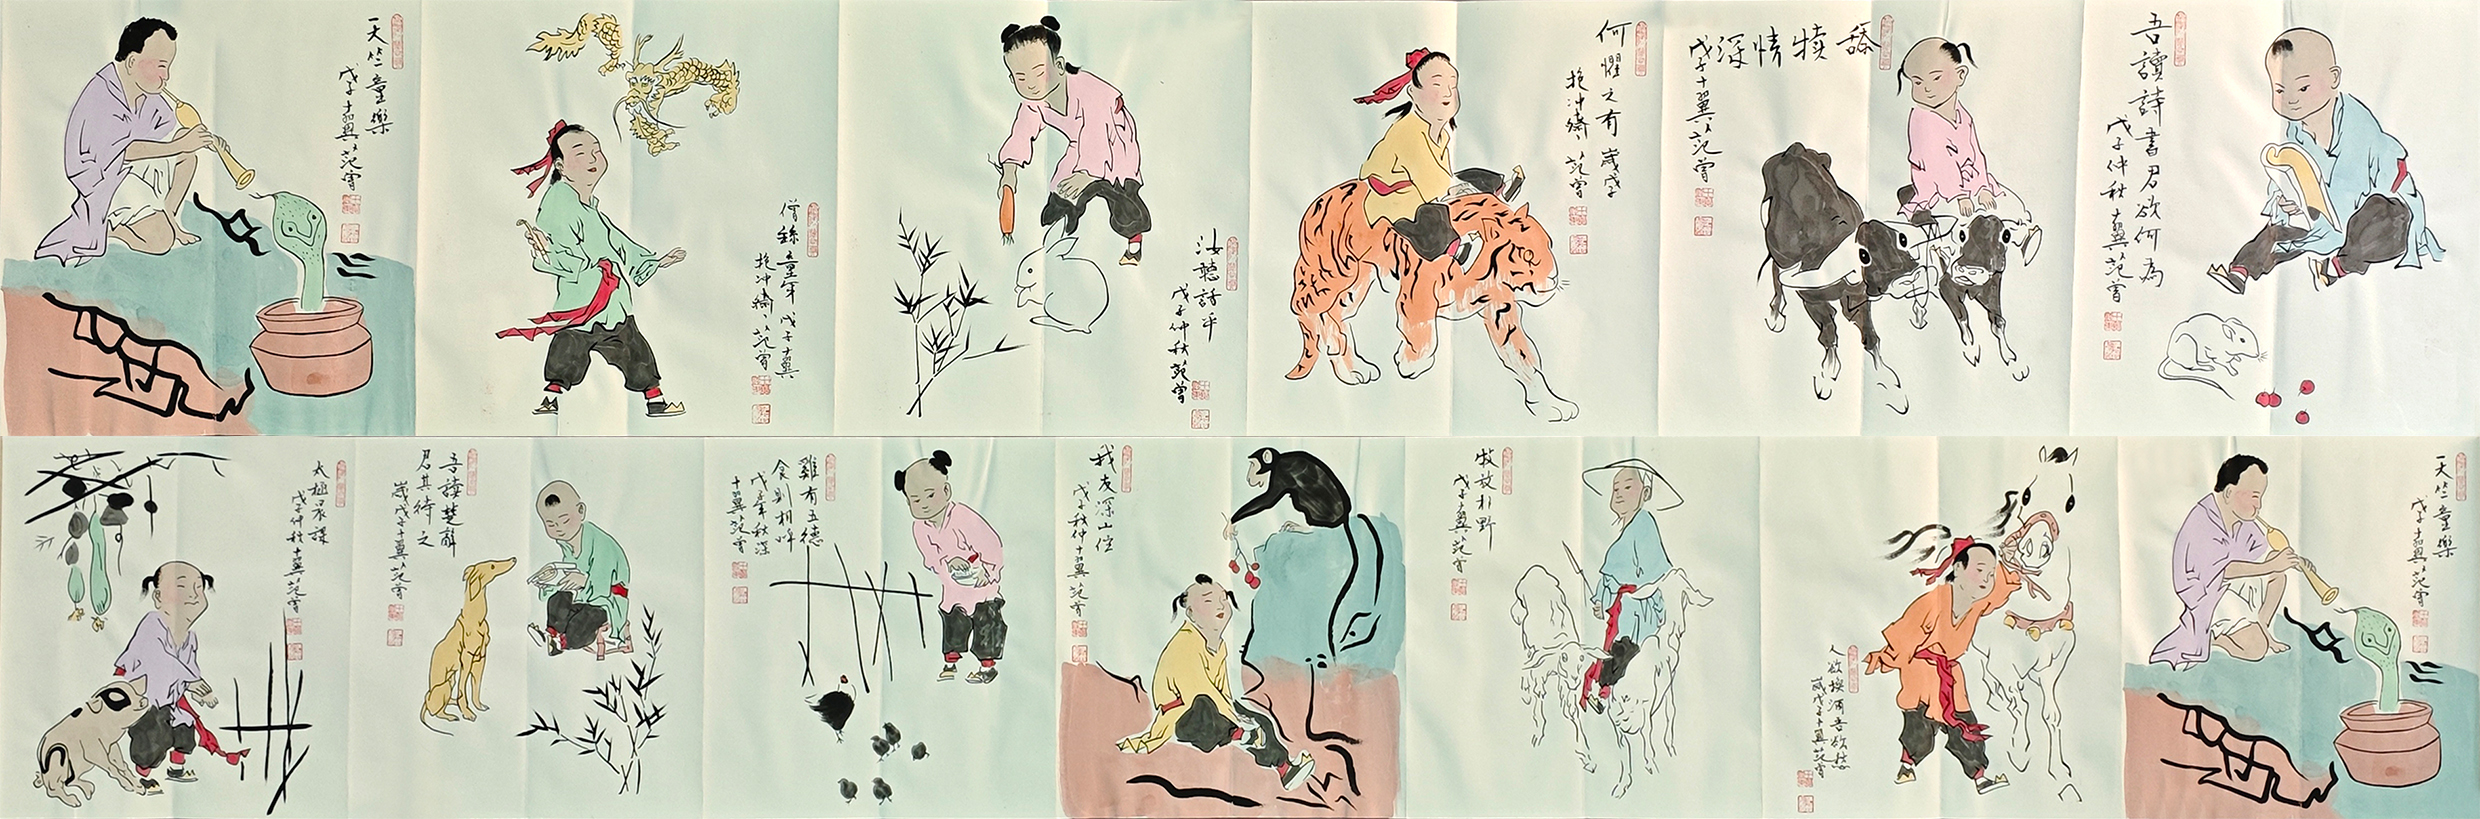 天竺童樂
戊子十翼范曾
僧繇童年戊子十翼
抱冲齋范曾
汝聽話乎
戊子仲秋范曾
何懼之有歲戊子
抱冲齋范曾
舐犢情深
戊子十翼范曾
吾讀詩書君欲何為
戊子仲秋十翼范曾
太極承課
戊子仲秋十翼范曾
吾讀楚辭
君其待之
歲戊子十翼范曾
雞有五德
食則相呼
戊子年秋深
十翼范曾
我友深山住
戊子秋仲十翼范曾
牧放朴野
戊子十翼范曾
人欲換酒吾欲愁
歲戊子十翼范曾
天竺童樂
戊子十翼范曾